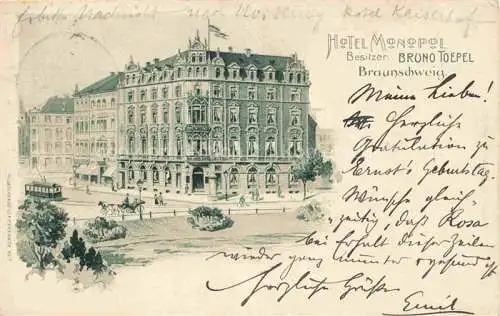 Hotel Monopol
Besitzer: BRUNO TOEPEL
Braunschweig.
Meine Lieben!
Herzliche
Gratulation zu
Ernst's Geburtstag.
Wünsche gleich
zeitig, daß Rosa
bei Erhalt dieser Zeilen
wieder ganz munter & gesund ist
Herzliche Grüße
Emil